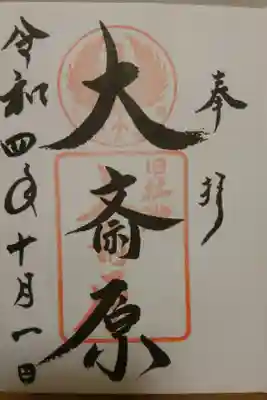 奉拝
大斎原
旧社地
令和四年十月一日